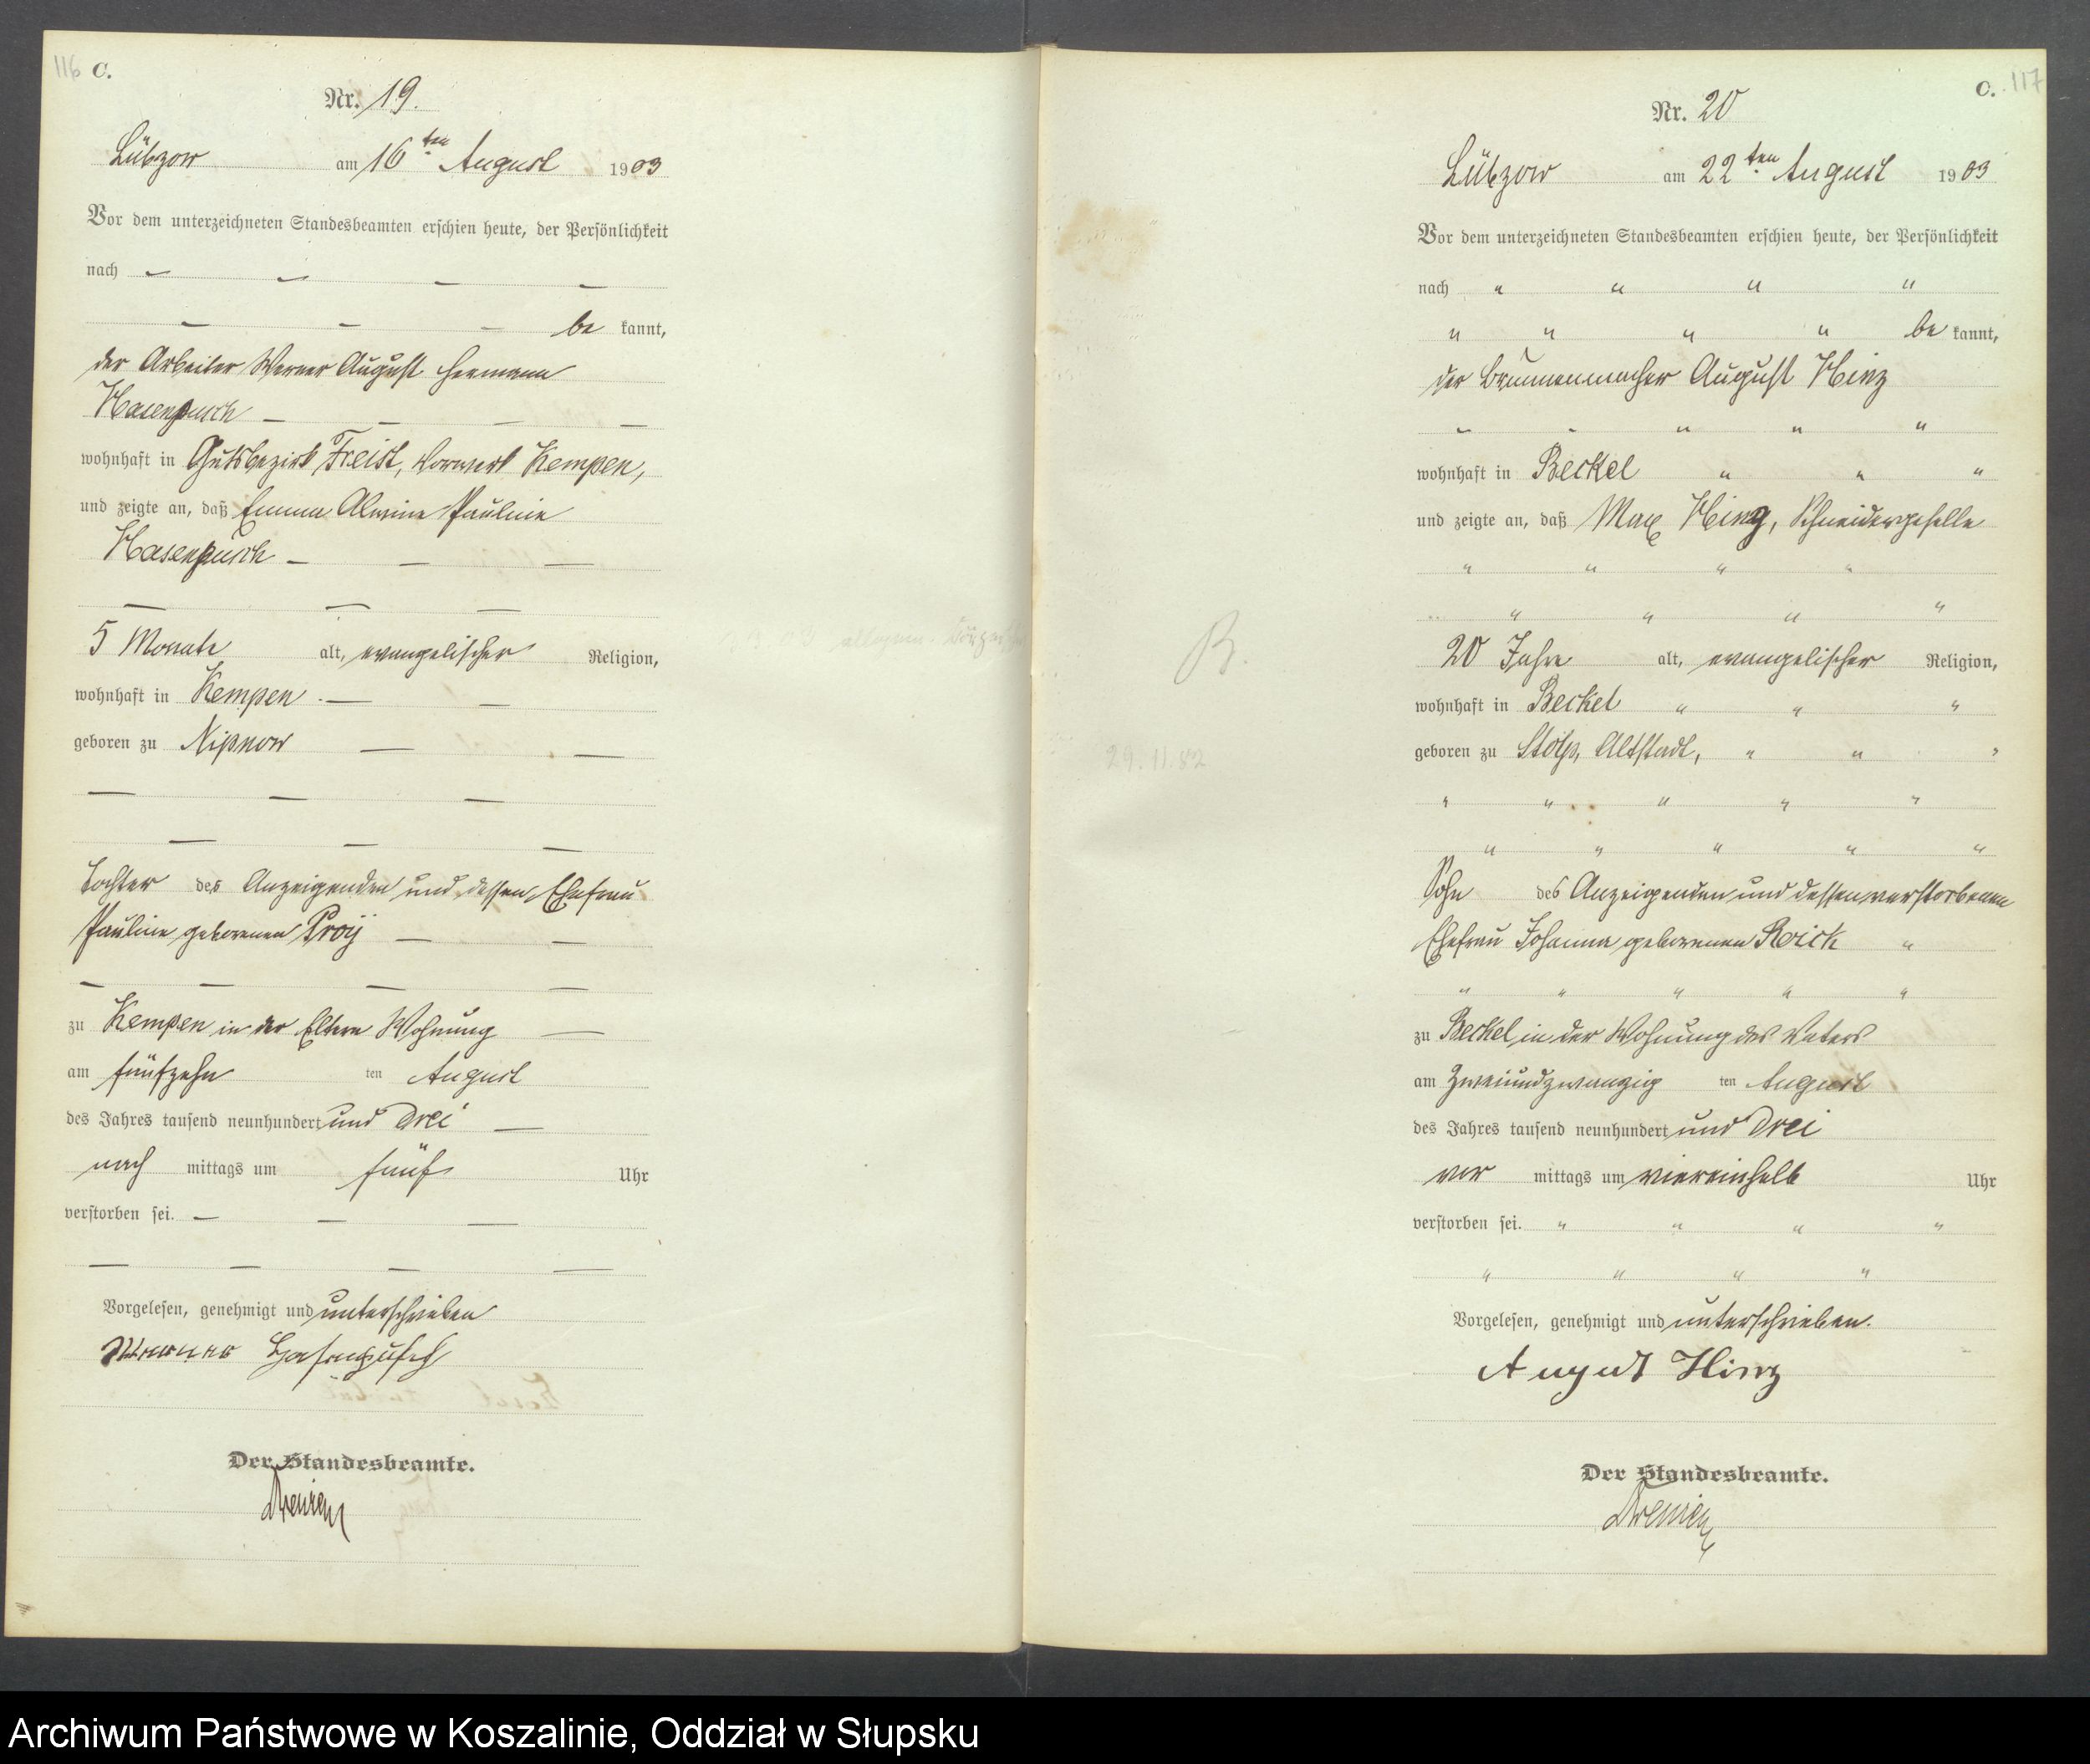 116 C.
Nr. 19.
Lübzow am 16ten August 1903
Vor dem unterzeichneten Standesbeamten erschien heute, der Persönlichkeit
nach — — — —
— — — be kannt,
der Arbeiter Werner August Hermann
Hasenpusch — — — —
wohnhaft in Gutsbezirk Freist, Vorwerk Kempen,
und zeigte an, daß Emma Alwine Pauline
Hasenpusch — — —
— — —
5 Monate alt, evangelischer Religion,
wohnhaft in Kempen — —
geboren zu Nipnow — —
— — —
— — —
Tochter des Anzeigenden und dessen Ehefrau
Pauline geborenen Proy — —
— — — —
zu Kempen in der Eltern Wohnung —
am fünfzehn ten August
des Jahres tausend neunhundert und drei —
nach mittags um fünf Uhr
verstorben sei. — — —
— — — —
Vorgelesen, genehmigt und unterschrieben
Werner Hasenpusch
Der Standesbeamte.
C. 117
Nr. 20
Lübzow am 22ten August 1903
Vor dem unterzeichneten Standesbeamten erschien heute, der Persönlichkeit
nach " " " "
" " " " be kannt,
der Brunnenmacher August Hinz
" " " " "
wohnhaft in Beckel " " "
und zeigte an, daß Max Hinz, Schneidergeselle
" " " "
" " " "
20 Jahre alt, evangelischer Religion,
wohnhaft in Beckel " " "
geboren zu Stolp, Altstadt, " " "
29.11.82
" " " " "
" " " " "
Sohn des Anzeigenden und dessen verstorbenen
Ehefrau Johanna geborenen Roick "
" " " " "
zu Beckel in der Wohnung des Vaters
am zweiundzwanzig ten August
des Jahres tausend neunhundert und drei
vor mittags um viereinhalb Uhr
verstorben sei. " " " "
" " " "
Vorgelesen, genehmigt und unterschrieben.
August Hinz
Der Standesbeamte.
Archiwum Państwowe w Koszalinie, Oddział w Słupsku